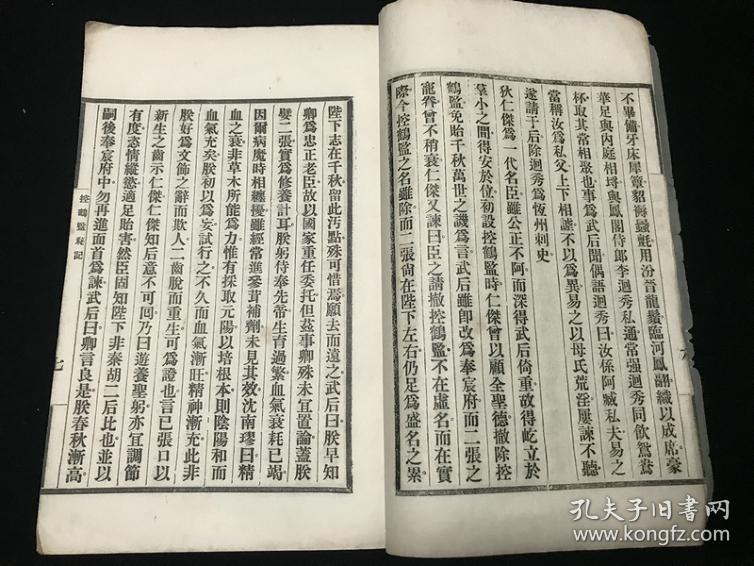 不畢備牙床犀簟貂褥蛩氈用汾晉龍鬚臨河鳳翮織以成席豪
華足與內庭相埒與鳳閣侍郎李迥秀私通常强迥秀同飲鴛鴦
杯取其常相聚也事爲武后聞偶語迥秀曰汝係阿臧私夫易之
當稱汝爲私父上下相謔不以爲異易之以母氏荒淫屢諫不聽
遂請于后除迥秀爲恆州刺史
狄仁傑爲一代名臣雖公正不阿而深得武后倚重故得屹立於
羣小之間得安於位初設控鶴監時仁傑曾以顧全聖德撤除控
鶴監免貽千秋萬世之譏爲言武后雖卽改爲奉宸府而二張之
寵眷曾不稍衰仁傑又諫曰臣之請撤控鶴監不在虛名而在實
際今控鶴監之名雖除而二張尙在陛下左右仍足爲盛名之累
陛下志在千秋留此汚點殊可惜焉願去而遠之武后曰朕早知
卿爲忠正老臣故以國家重任委托但茲事卿殊未宜置論蓋朕
嬖二張實爲修養計耳朕躬侍奉先帝生育過繁血氣衰耗已竭
因爾病魔時相纏擾雖經常進參茸補劑未見其效沈南璆曰精
血之衰非草木所能爲力惟有採取元陽以培根本則陰陽和而
血氣充矣朕初以爲妄試行之不久而血氣漸旺精神漸充此非
朕好爲文飾之辭而欺人二齒脫而重生可爲證也言已張口以
新生之齒示仁傑仁傑知后意不可回乃曰遊養聖躬亦宜調節
有度恣情縱慾適足貽害然臣固知陛下非秦胡二后比也並以
嗣後奉宸府中勿再進面首爲諫武后曰卿言良是朕春秋漸高
控鶴監秘記
七
孔夫子旧书网
www.kongfz.com